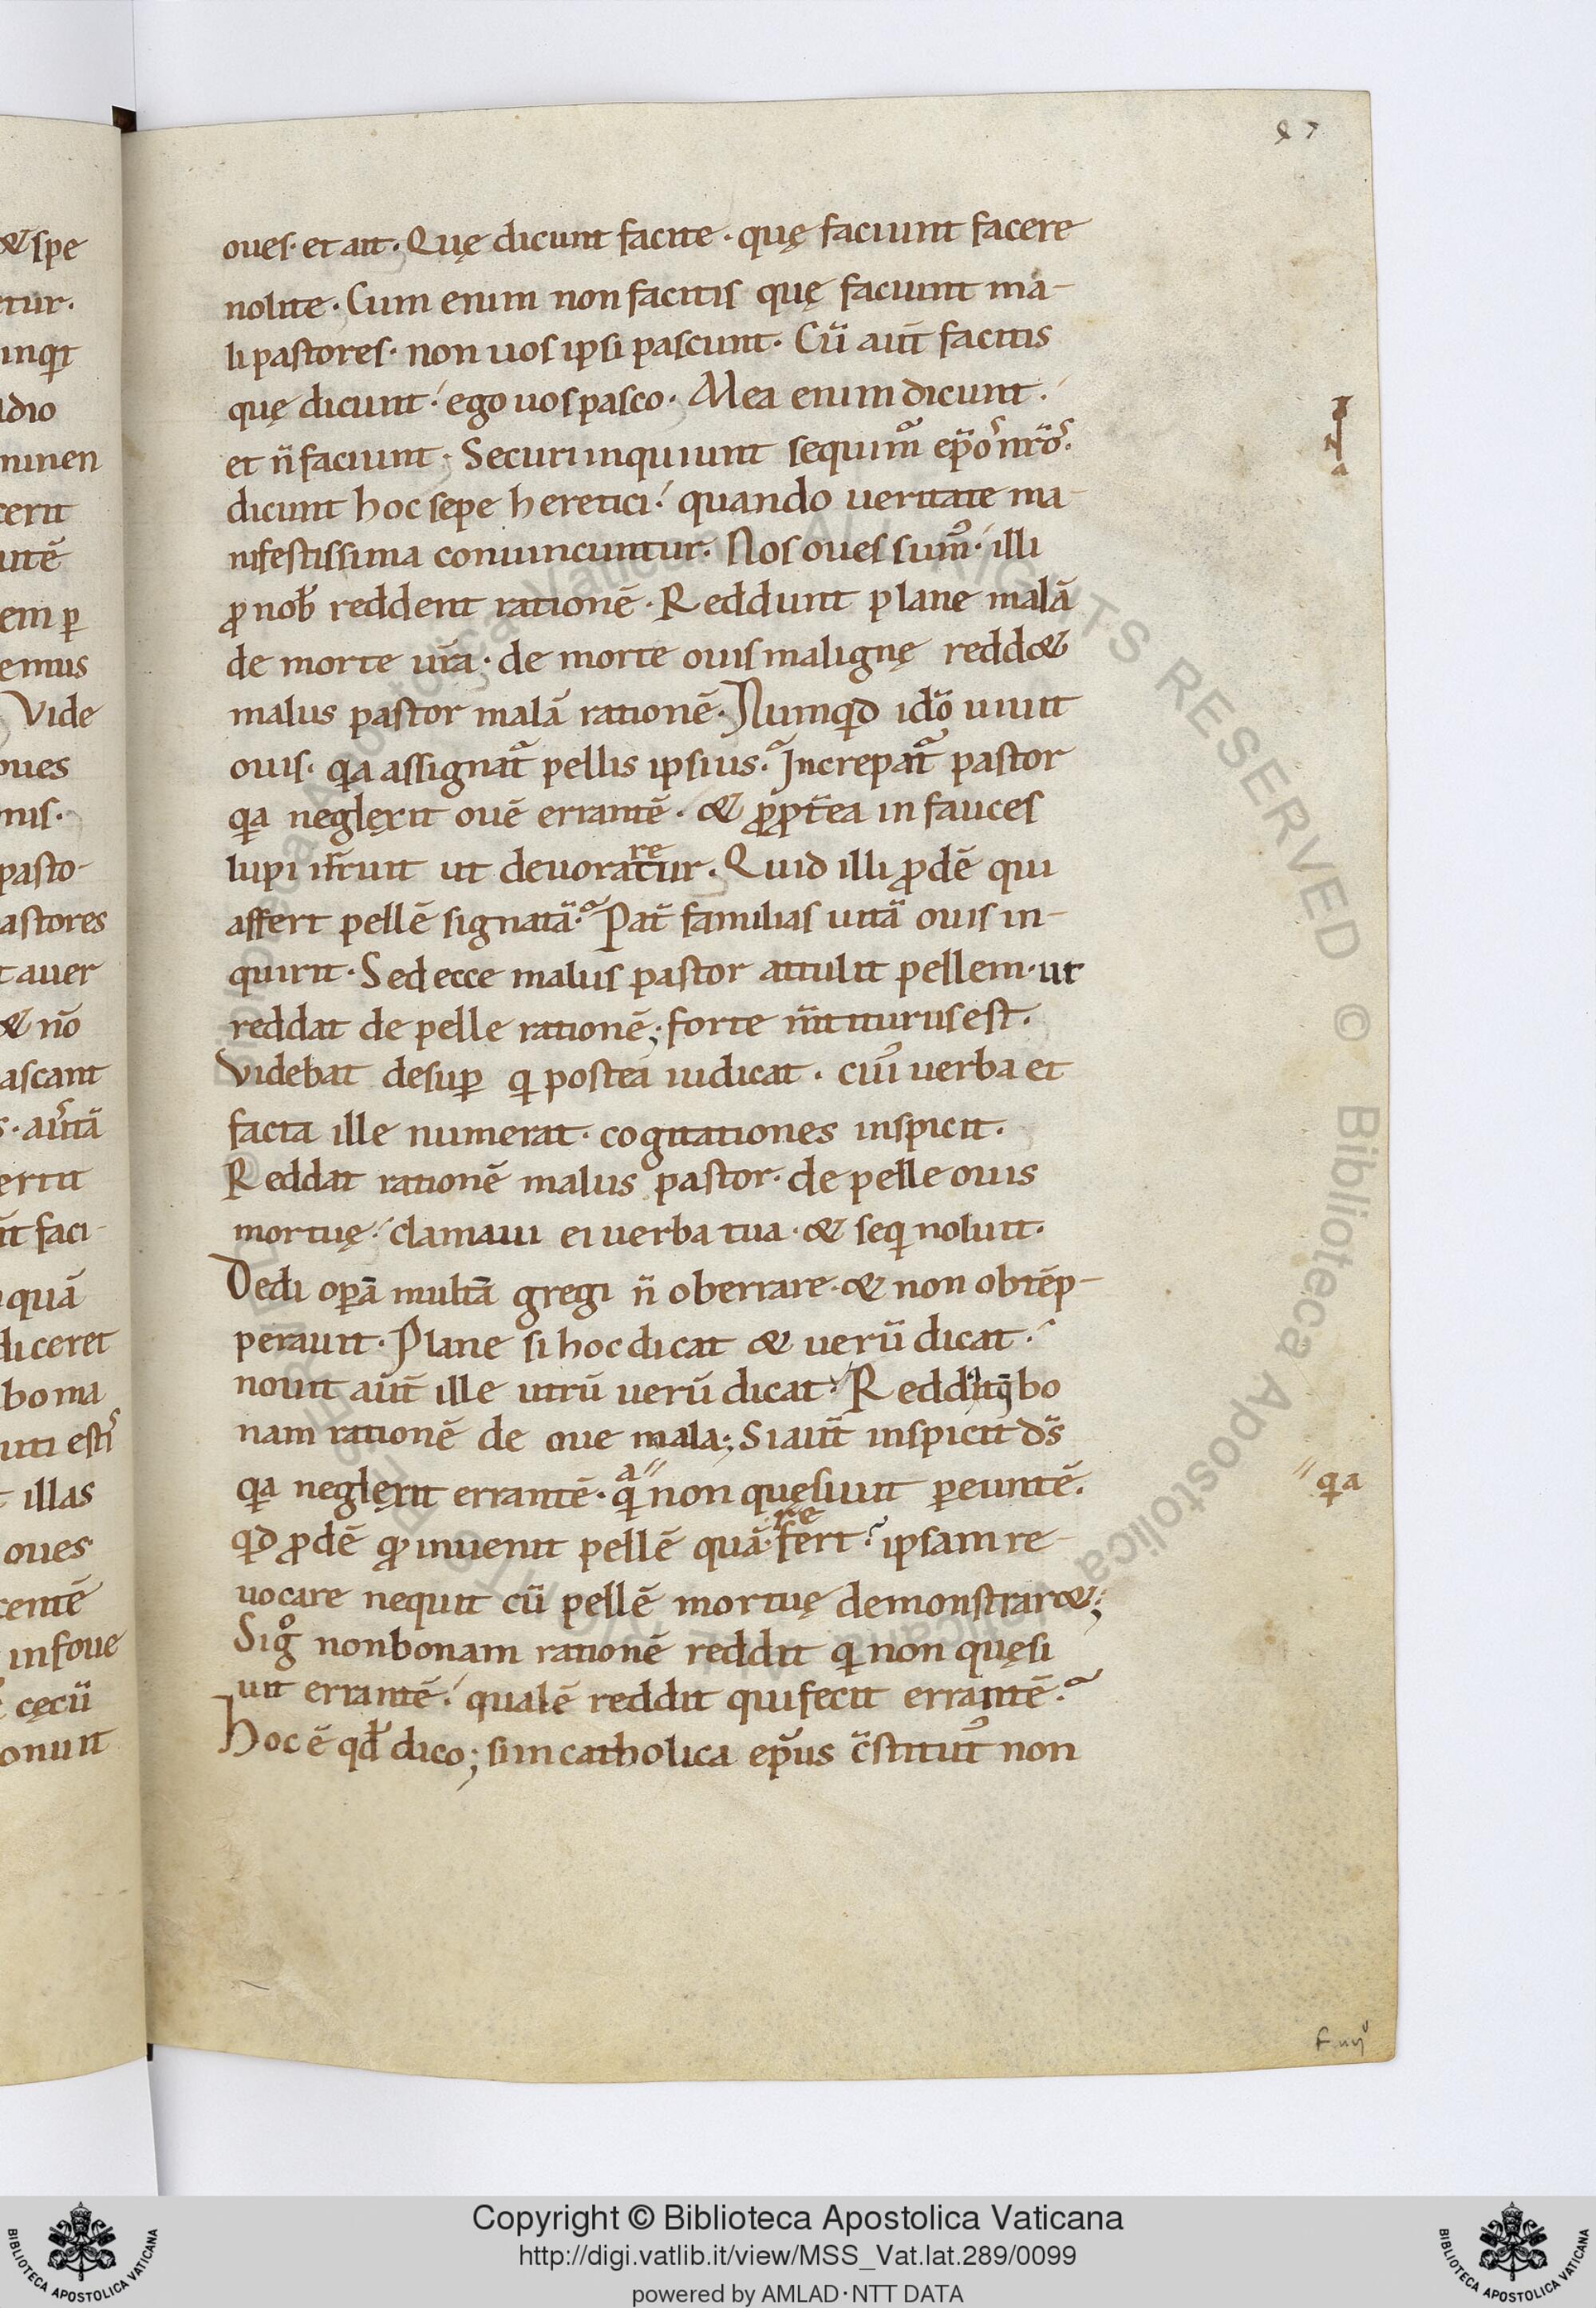 97
oues· et ait· Quę dicunt facite· quę faciunt facere
nolite· Cum enim non facitis quę faciunt ma-
li pastores· non uos ipsi pascunt· Cū aut̄ facitis
quę dicunt· ego uos pasco· Mea enim dicunt·
et n̄ faciunt· Securi inquiunt sequim᷒ ep̄os nr̄os·
dicunt hoc sepe heretici· quando ueritate ma-
nifestissima conuincuntur· Nos oues sum᷒· illi
ꝓ nob̄ reddent rationē· Reddunt plane malā
de morte ur̄a· de morte ouis malignę redd&
malus pastor malā rationē· Numqd ido̅ uiuit
ouis· qa assignat᷑ pellis ipsius· Increpat᷑ pastor
qa neglęxit ouē errantē· & ꝓpt̄ea in fauces
lupi irruit ut deuoraretur· Quid illi ꝓdē qui
affert pellē signatā· Pat̄ familias uitā ouis in-
quirit· Sed ecce malus pastor attulit pellem· ut
reddat de pelle rationē; forte m̄titurus est·
Videbat desuꝑ q postea iudicat· cui᷒ uerba et
facta ille numerat· cogitationes inspicit·
Reddat rationē malus pastor· de pelle ouis
mortuę· clamaui ei uerba tua· & seq noluit·
Dedi oꝑā multā gregi n̄ oberrare· & non obtēp-
perauit· Plane si hoc dicat & uerū dicat·
nouit aut̄ ille utrū uerū dicat· Reddit bo
nam rationē de oue mala; Si aut̄ inspicit ds̄
qa neglęxit errantē· qa non quęsiuit ꝑeuntē·
qd ꝓdē inuenit pellē quā· refert· ipsam re-
uocare nequit cū pellē mortuę demonstrar&;
Sig̊ non bonam rationē reddit q non quęsi
uit errantē· qualē reddit qui fecit errantē·
Hoc ē qd̄ dico; si in catholica ep̄us c̄stitut᷒ non
qa
&spe
tur·
inqt
dio
minen
cerit
utē
em ꝑ
emus
Vide
oues
nis·
pasto-
astores
t auer
& nō
ascant
ertit
nt faci-
quā
diceret
bo ma
illas
oues
centē
in foue
cęcū
onunt
Copyright © Biblioteca Apostolica Vaticana
http://digi.vatlib.it/view/MSS_Vat.lat.289/0099
powered by AMLAD·NTT DATA
BIBLIOTECA APOSTOLICA VATICANA
BIBLIOTECA APOSTOLICA VATICANA